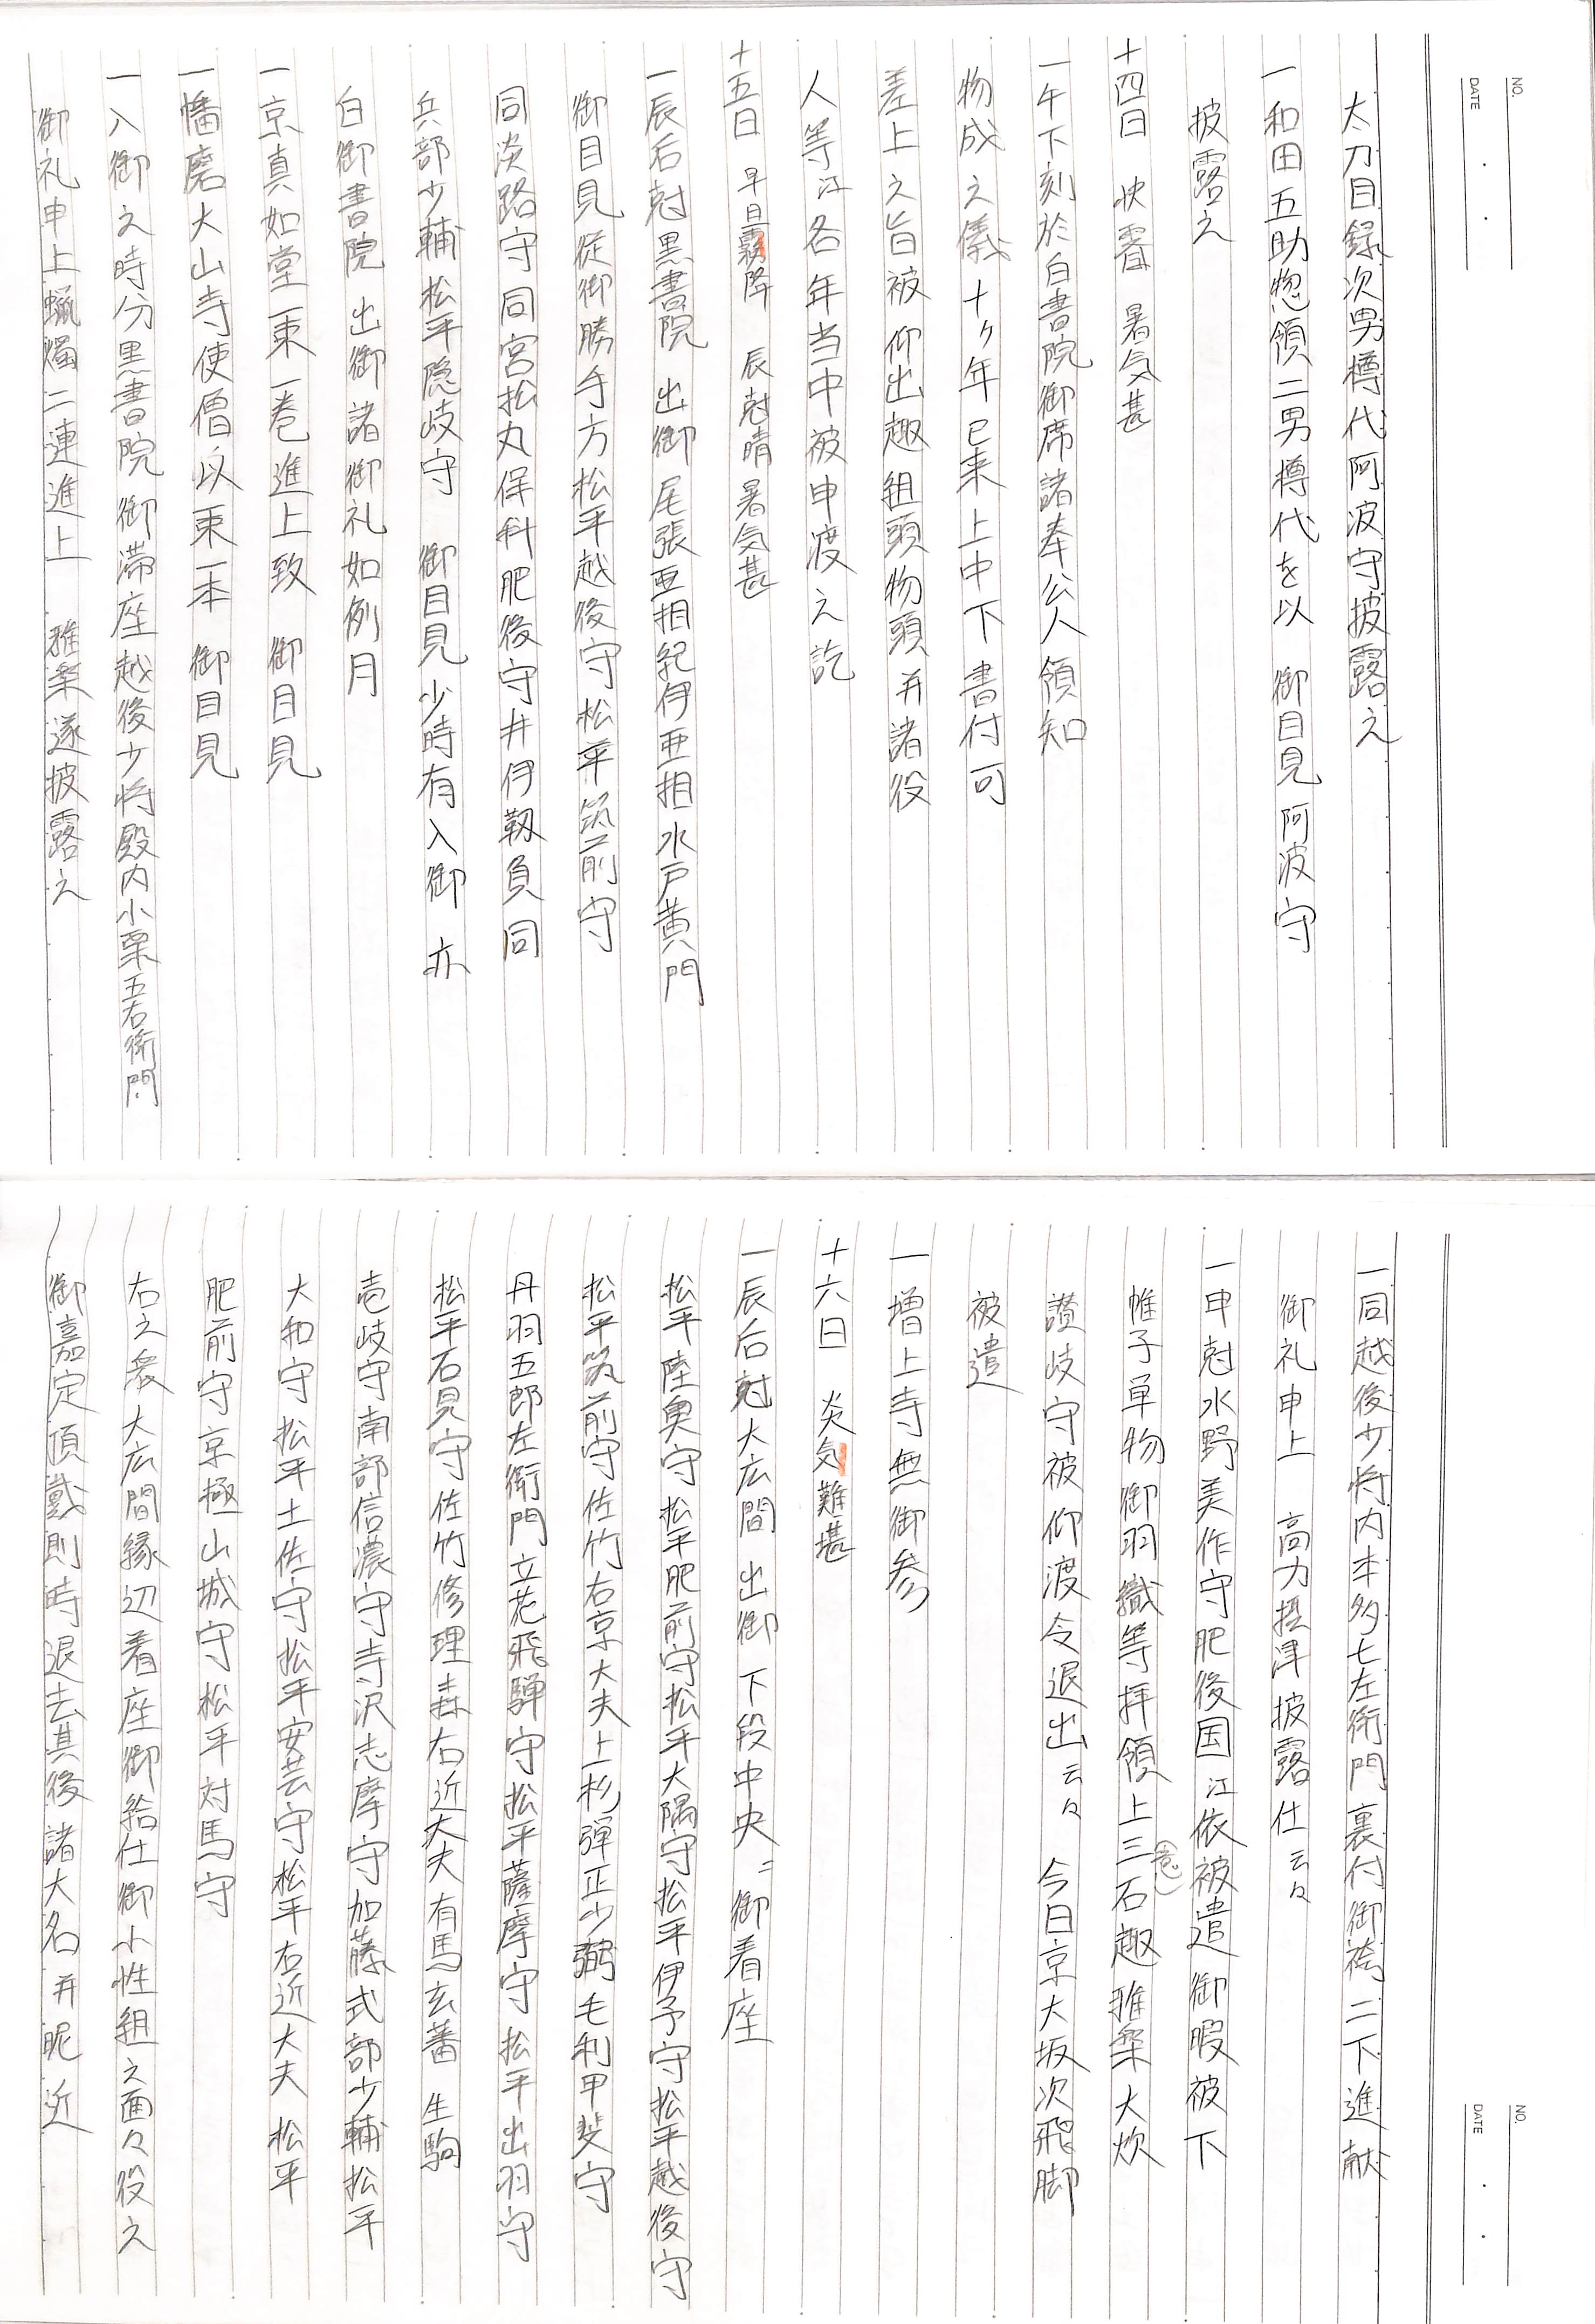 NO.
DATE
太刀目録次男樽代阿波守披露之
一和田五助惣領二男樽代を以 御目見阿波守
披露之
十四日 快霽 暑気甚
一午下刻於白書院御席諸奉公人領知
物成之儀十ヶ年已来上中下書付可
差上之旨被仰出趣組頭物頭并諸役
人等江各年当中被申渡之訖
十五日 早旦霧降 辰尅晴暑気甚
一辰后尅黒書院 出御尾張亜相紀伊亜相水戸黄門
御目見従御勝手方松平越後守松平筑前守
同淡路守同宮松丸保科肥後守井伊靱負同
兵部少輔松平隠岐守 御目見少時有入御 亦
白御書院 出御諸御礼如例月
一京真如堂一束一巻進上致 御目見
一幡磨大山寺使僧以一束一本 御目見
一入御之時分黒書院御滞座越後少将殿内小栗五右衛門
御礼申上蝋燭二連進上 雅楽遂披露之
NO.
DATE
一同越後少将内本多七左衛門裏付御袴二下進献
御礼申上 高力摂津披露仕云々
一申尅水野美作守肥後国江依被遣御暇被下
帷子単物御羽織等拝領上三石趣雅楽大炊
讃岐守被仰渡令退出云々 今日京大坂次飛脚
被遣
一増上寺無御参
十六日 炎気難堪
一辰后尅大広間 出御 下段中央ニ御着座
松平陸奥守松平肥前守松平大隅守松平伊予守松平越後守
松平筑前守佐竹右京大夫上杉弾正少弼毛利甲斐守
丹羽五郎左衛門立花飛騨守松平薩摩守松平出羽守
松平石見守佐竹修理森右近大夫有馬玄蕃 生駒
壱岐守南部信濃守寺沢志摩守加藤式部少輔松平
大和守松平土佐守松平安芸守松平右近大夫 松平
肥前守京極山城守松平対馬守
右之衆大広間縁辺着座御給仕御小性組之面々役之
御嘉定頂戴則時退去其後諸大名并昵近